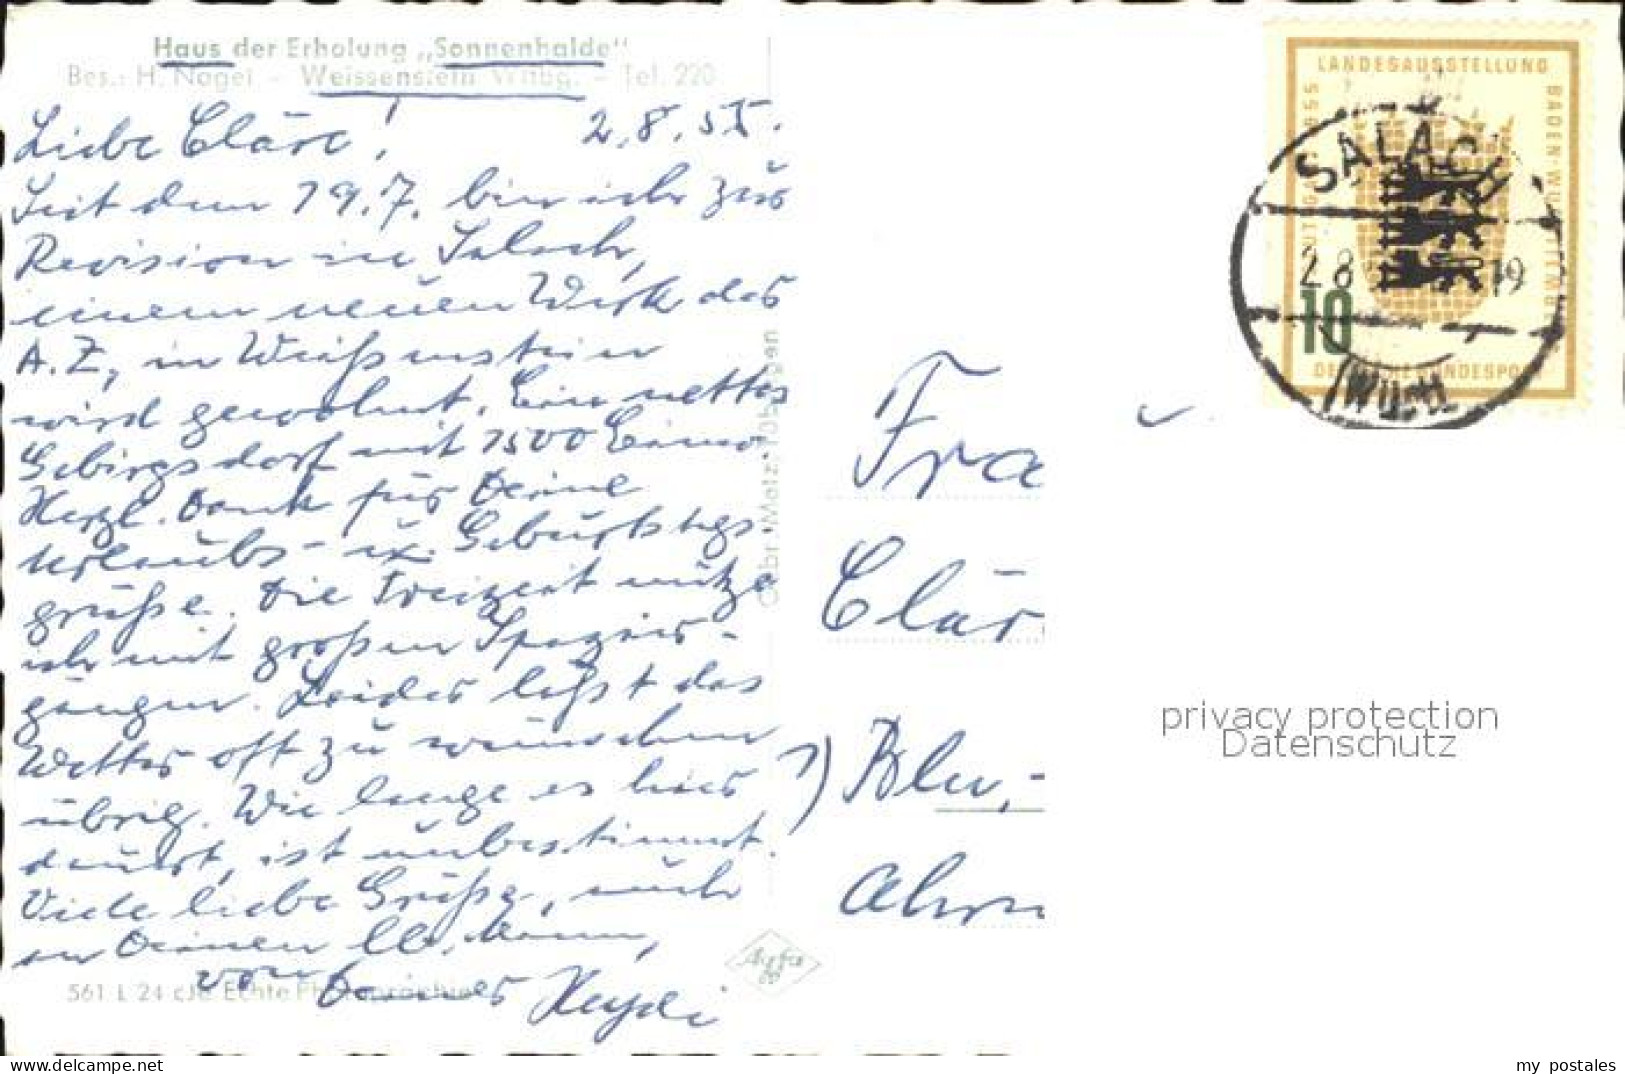 Haus der Erholung „Sonnenhalde"
Bes.: H. Nagel - Weissenstein Wttbg. - Tel. 220
2.8.55.
Liebe Cläre!
Seit dem 19.7. bin ich zur
Revision in Salach,
einem neuen Werk der
A.Z., in Weißenstein
wird gewohnt. Ein nettes
Gebirgsdorf mit 1500 Einw.
Herzl. Dank für Deine
Urlaubs- u. Geburtstags
grüße. Die Freizeit nütze
ich mit großen Spazier-
gängen. Leider läßt das
Wetter oft zu wünschen
übrig. Wie lange es hier
dauert, ist unbestimmt.
Viele liebe Grüße, auch
an Deinen lb. Mann,
von Deiner
561 L 24 Echte
Agfa
Gebr. Metz, Tübingen
LANDESAUSSTELLUNG
BADEN-WÜRTTEMBERG
STUTTGART 1955
10
DEUTSCHE BUNDESPOST
SALACH
2.8 19
(Württ)
Fra
Clär
Blu,-
Ahr
privacy protection
Datenschutz
my postales